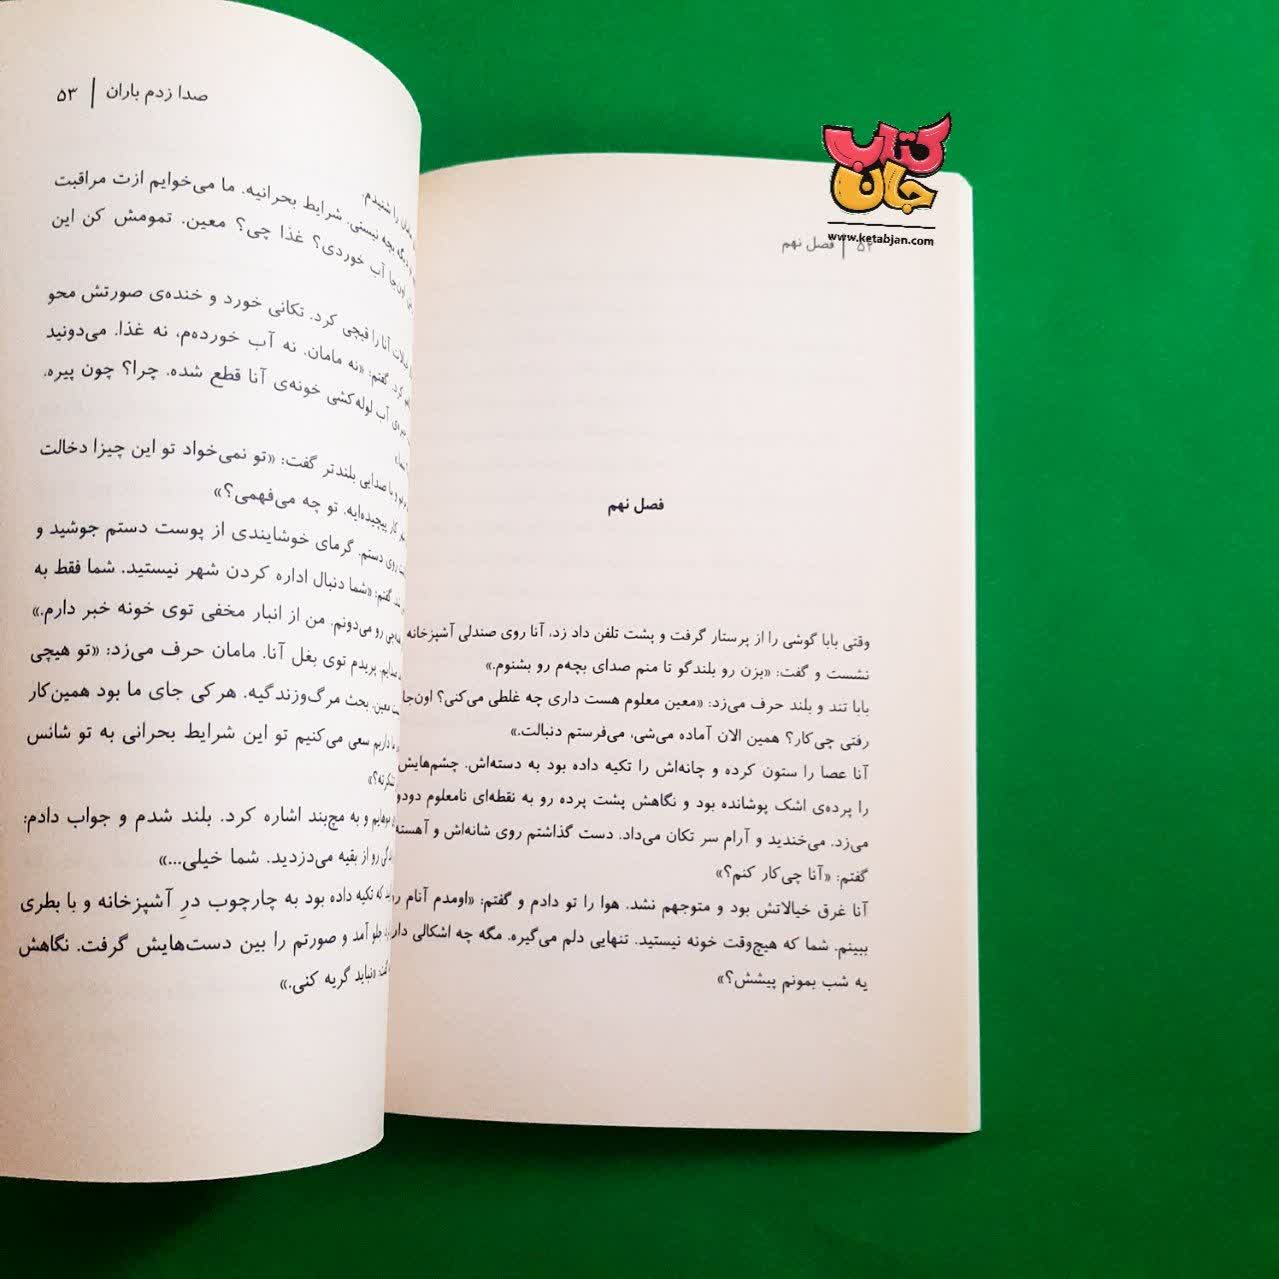 کتاب
جان
www.ketabjan.com
۵۲ | فصل نهم
فصل نهم
وقتی بابا گوشی را از پرستار گرفت و پشت تلفن داد زد، آنا روی صندلی آشپزخانه
نشست و گفت: «بزن رو بلندگو تا منم صدای بچه‌م رو بشنوم.»
بابا تند و بلند حرف می‌زد: «معین معلوم هست داری چه غلطی می‌کنی؟ اون‌جا
رفتی چی‌کار؟ همین الان آماده می‌شی، می‌فرستم دنبالت.»
آنا عصا را ستون کرده و چانه‌اش را تکیه داده بود به دسته‌اش. چشم‌هایش
را پرده‌ی اشک پوشانده بود و نگاهش پشت پرده رو به نقطه‌ای نامعلوم دودو
می‌زد. می‌خندید و آرام سر تکان می‌داد. دست گذاشتم روی شانه‌اش و آهسته
گفتم: «آنا چی‌کار کنم؟»
آنا غرق خیالاتش بود و متوجهم نشد. هوا را تو دادم و گفتم: «اومدم آنام رو
ببینم. شما که هیچ‌وقت خونه نیستید. تنهایی دلم می‌گیره. مگه چه اشکالی داره
یه شب بمونم پیشش؟»
صدا زدم باران | ۵۳
را شنیدم.
دیگه بچه نیستی. شرایط بحرانیه. ما می‌خوایم ازت مراقبت
اون‌جا آب خوردی؟ غذا چی؟ معین. تمومش کن این
آنا را قیچی کرد. تکانی خورد و خنده‌ی صورتش محو
کرد. گفتم: «نه مامان. نه آب خورده‌م، نه غذا. می‌دونید
آب لوله‌کشی خونه‌ی آنا قطع شده. چرا؟ چون پیره.
و با صدایی بلندتر گفت: «تو نمی‌خواد تو این چیزا دخالت
کار پیچیده‌ایه. تو چه می‌فهمی؟»
روی دستم. گرمای خوشایندی از پوست دستم جوشید و
گفتم: «شما دنبال اداره کردن شهر نیستید. شما فقط به
رو می‌دونم. من از انبار مخفی توی خونه خبر دارم.»
پریدم توی بغل آنا. مامان حرف می‌زد: «تو هیچی
معین. بحث مرگ‌وزندگیه. هرکی جای ما بود همین‌کار
داریم سعی می‌کنیم تو این شرایط بحرانی به تو شانس
و به مچ‌بند اشاره کرد. بلند شدم و جواب دادم:
رو از بقیه می‌دزدید. شما خیلی...»
که تکیه داده بود به چارچوب درِ آشپزخانه و با بطری
جلو آمد و صورتم را بین دست‌هایش گرفت. نگاهش
«نباید گریه کنی.»